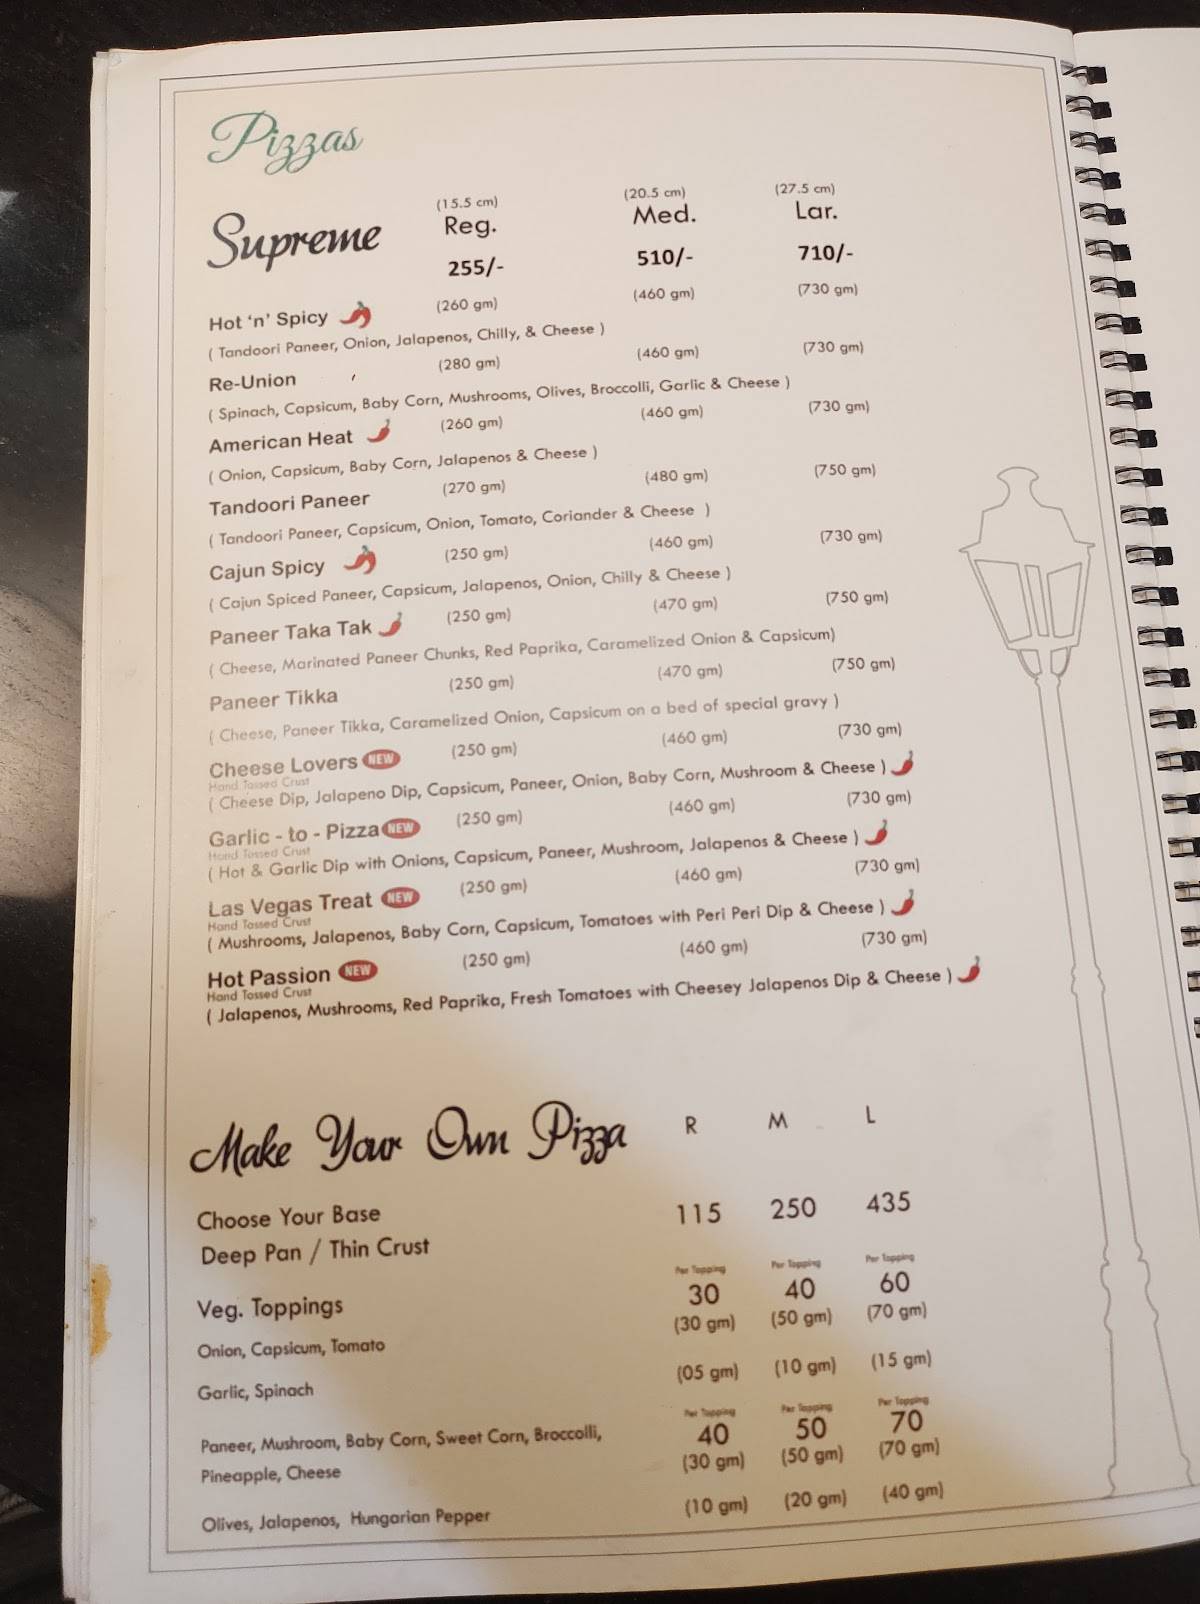 Pizzas
(15.5 cm) (20.5 cm) (27.5 cm)
Supreme Reg. Med. Lar.
255/- 510/- 710/-
Hot 'n' Spicy (260 gm) (460 gm) (730 gm)
( Tandoori Paneer, Onion, Jalapenos, Chilly, & Cheese )
Re-Union (280 gm) (460 gm) (730 gm)
( Spinach, Capsicum, Baby Corn, Mushrooms, Olives, Broccolli, Garlic & Cheese )
American Heat (260 gm) (460 gm) (730 gm)
( Onion, Capsicum, Baby Corn, Jalapenos & Cheese )
Tandoori Paneer (270 gm) (480 gm) (750 gm)
( Tandoori Paneer, Capsicum, Onion, Tomato, Coriander & Cheese )
Cajun Spicy (250 gm) (460 gm) (730 gm)
( Cajun Spiced Paneer, Capsicum, Jalapenos, Onion, Chilly & Cheese )
Paneer Taka Tak (250 gm) (470 gm) (750 gm)
( Cheese, Marinated Paneer Chunks, Red Paprika, Caramelized Onion & Capsicum)
Paneer Tikka (250 gm) (470 gm) (750 gm)
( Cheese, Paneer Tikka, Caramelized Onion, Capsicum on a bed of special gravy )
Cheese Lovers NEW (250 gm) (460 gm) (730 gm)
Hand Tossed Crust
( Cheese Dip, Jalapeno Dip, Capsicum, Paneer, Onion, Baby Corn, Mushroom & Cheese )
Garlic - to - Pizza NEW (250 gm) (460 gm) (730 gm)
Hand Tossed Crust
( Hot & Garlic Dip with Onions, Capsicum, Paneer, Mushroom, Jalapenos & Cheese )
Las Vegas Treat NEW (250 gm) (460 gm) (730 gm)
Hand Tossed Crust
( Mushrooms, Jalapenos, Baby Corn, Capsicum, Tomatoes with Peri Peri Dip & Cheese )
Hot Passion NEW (250 gm) (460 gm) (730 gm)
Hand Tossed Crust
( Jalapenos, Mushrooms, Red Paprika, Fresh Tomatoes with Cheesey Jalapenos Dip & Cheese )
Make Your Own Pizza R M L
Choose Your Base 115 250 435
Deep Pan / Thin Crust
Per Topping Per Topping Per Topping
Veg. Toppings 30 40 60
(30 gm) (50 gm) (70 gm)
Onion, Capsicum, Tomato
Garlic, Spinach (05 gm) (10 gm) (15 gm)
Per Topping Per Topping Per Topping
Paneer, Mushroom, Baby Corn, Sweet Corn, Broccolli, 40 50 70
Pineapple, Cheese (30 gm) (50 gm) (70 gm)
Olives, Jalapenos, Hungarian Pepper (10 gm) (20 gm) (40 gm)